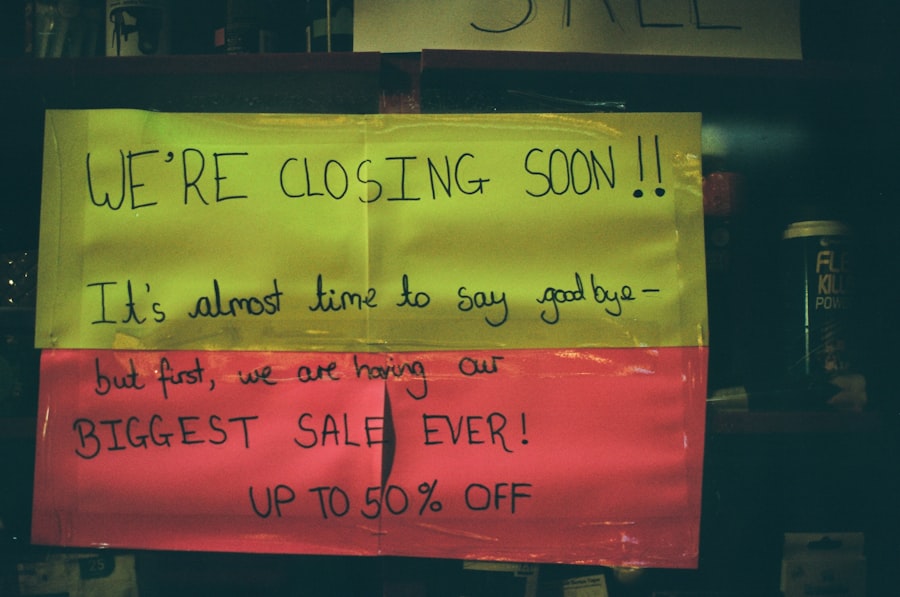 SALE
WE'RE CLOSING SOON!!
It's almost time to say goodbye-
but first, we are having our
BIGGEST SALE EVER!
UP TO 50% OFF
KILL
25